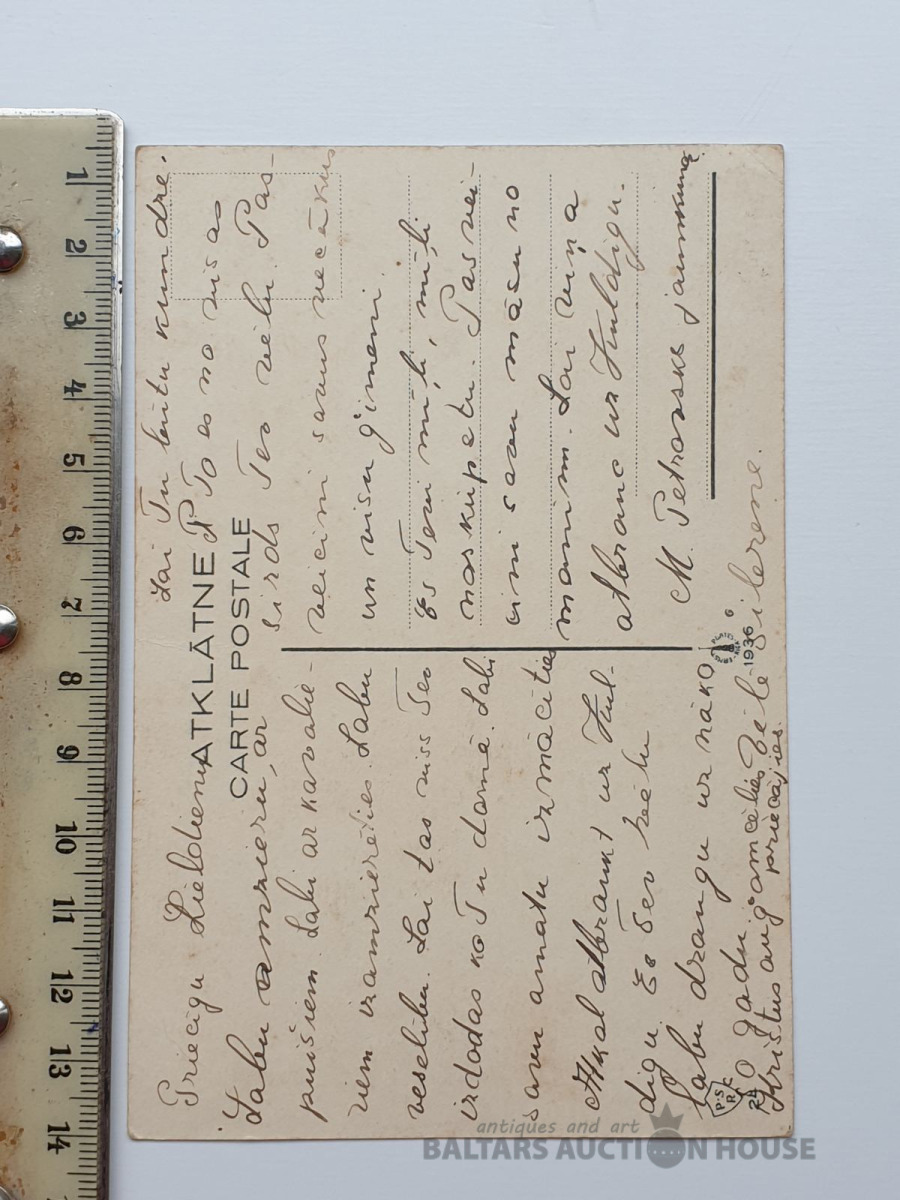 Priecīgu Lieldienu
ATKLĀTNE
CARTE POSTALE
Labu omzieru, ar
puišiem. Labi ar kavalie-
riem izamizēties. Labu
veselību. Lai tas viss Tev
izdodas ko Tu domā. Labi
savu amatu izmācīties
Atkal atbraukt uz Kul-
digu. Es Tev vēlu
labu draugu uz nāko
šo gadu.
Kristus augšamcēlies Zēlē
priecājies
zilerene.
Lai Tu būtu kundze.
To es no visas
sirds Tev vēlu. Pas-
veicini savus vecākus
un visu ģimeni.
Es Tevi mīļi, mīļi
noskūpstu. Pasvei-
cini savu māsu no
manim. Lai viņa
atbrauc uz Kuldigu.
M. Petrovskis jaunkung
1936
6
P.S.R.
24
1
2
3
4
5
6
7
8
9
10
11
12
13
14
antiques and art
BALTARS AUCTION HOUSE